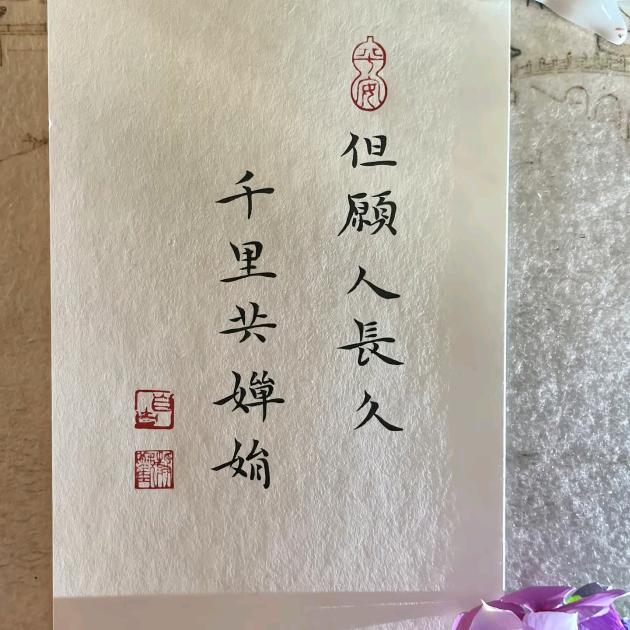 平安
但願人長久
千里共嬋娟